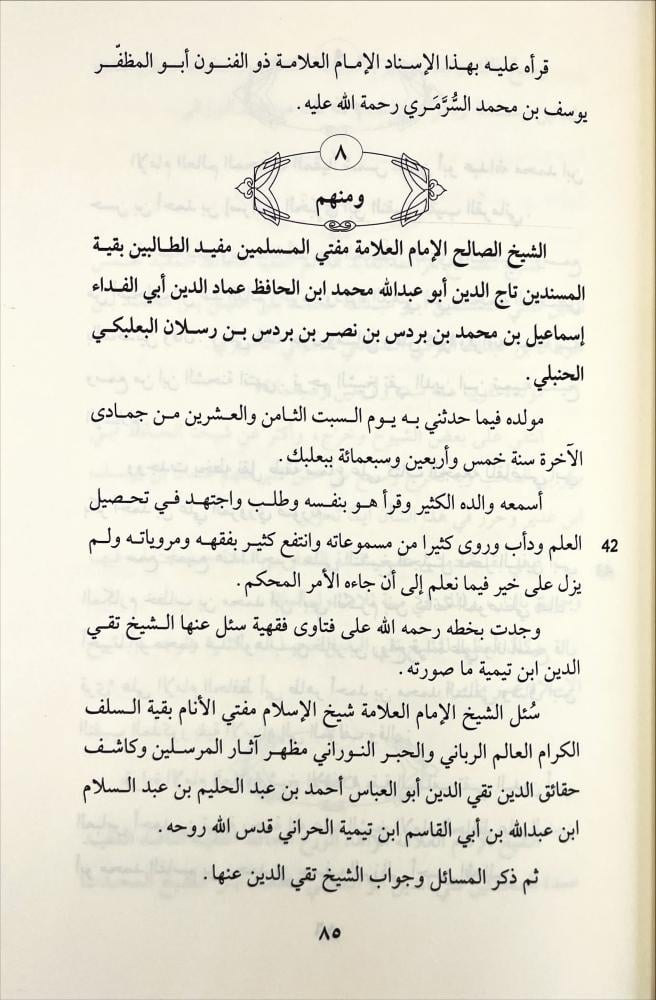 قرأه عليه بهذا الإسناد الإمام العلامة ذو الفنون أبو المظفّر
يوسف بن محمد السُّرَّمَري رحمة الله عليه .
٨
ومنهم
الشيخ الصالح الإمام العلامة مفتي المسلمين مفيد الطالبين بقية
المسندين تاج الدين أبو عبدالله محمد ابن الحافظ عماد الدين أبي الفداء
إسماعيل بن محمد بن بردس بن نصر بن بردس بن رسلان البعلبكي
الحنبلي .
مولده فيما حدثني به يوم السبت الثامن والعشرين من جمادى
الآخرة سنة خمس وأربعين وسبعمائة ببعلبك .
أسمعه والده الكثير وقرأ هو بنفسه وطلب واجتهد في تحصيل
العلم ودأب وروى كثيرا من مسموعاته وانتفع كثير بفقهه ومروياته ولم
42
يزل على خير فيما نعلم إلى أن جاءه الأمر المحكم .
وجدت بخطه رحمه الله على فتاوى فقهية سئل عنها الشيخ تقي
الدين ابن تيمية ما صورته .
سُئل الشيخ الإمام العلامة شيخ الإسلام مفتي الأنام بقية السلف
الكرام العالم الرباني والحبر النوراني مظهر آثار المرسلين وكاشف
حقائق الدين تقي الدين أبو العباس أحمد بن عبد الحليم بن عبد السلام
ابن عبدالله بن أبي القاسم ابن تيمية الحراني قدس الله روحه .
ثم ذكر المسائل وجواب الشيخ تقي الدين عنها .
٨٥